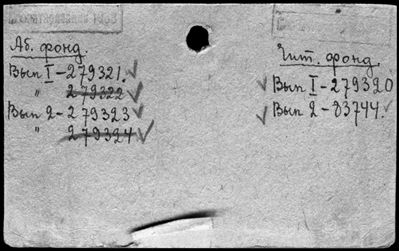 Аб. фонд.
Вып I - 279321.
" 279322
Вып 2 - 279323
" 279324
Чит. фонд
Вып I - 279320
Вып 2 - 83744.